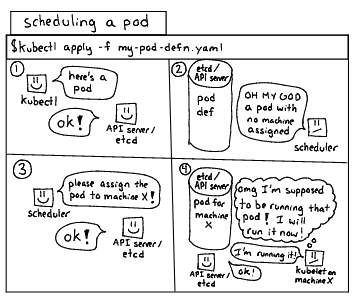 scheduling a pod
$kubectl apply -f my-pod-defn.yaml
1
here's a
pod
kubectl
ok!
API server/
etcd
2
etcd/
API server
pod
def
OH MY GOD
a pod with
no machine
assigned
scheduler
3
please assign the
pod to machine X!
scheduler
ok!
API server/
etcd
4
etcd/
API server
pod for
machine
X
omg I'm supposed
to be running that
pod! I will
run it now!
I'm running it!
ok!
API server/
etcd
kubelet on
machine X